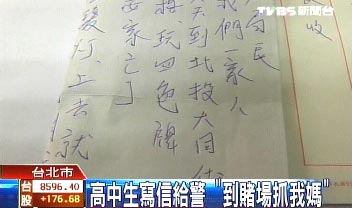 TVBS 新聞台
收
局長
我們一家人
天到北投大同街
將玩四色牌
家亡]
發燈上去就
台北市
台股 8596.40
+176.68
高中生寫信給警 "到賭場抓我媽"